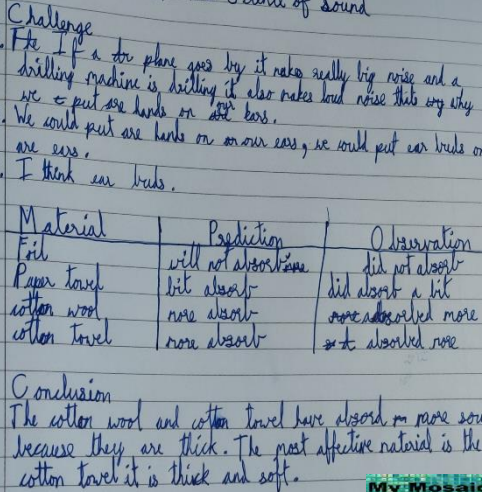 of sound
Challenge
If a plane goes by it makes really big noise and a
drilling machine is drilling it also makes loud noise thats why
we put are hands on our ears.
We could put are hands on our ears, we could put ear buds on
are ears.
I think ear buds.
Material Prediction Observation
Foil will not absorb did not absorb
Paper towel bit absorb did absorb a bit
cotton wool more absorb absorbed more
cotton towel more absorb absorbed more
Conclusion
The cotton wool and cotton towel have absord more sou
because they are thick. The most affective material is the
cotton towel it is thick and soft.
My Mosaic